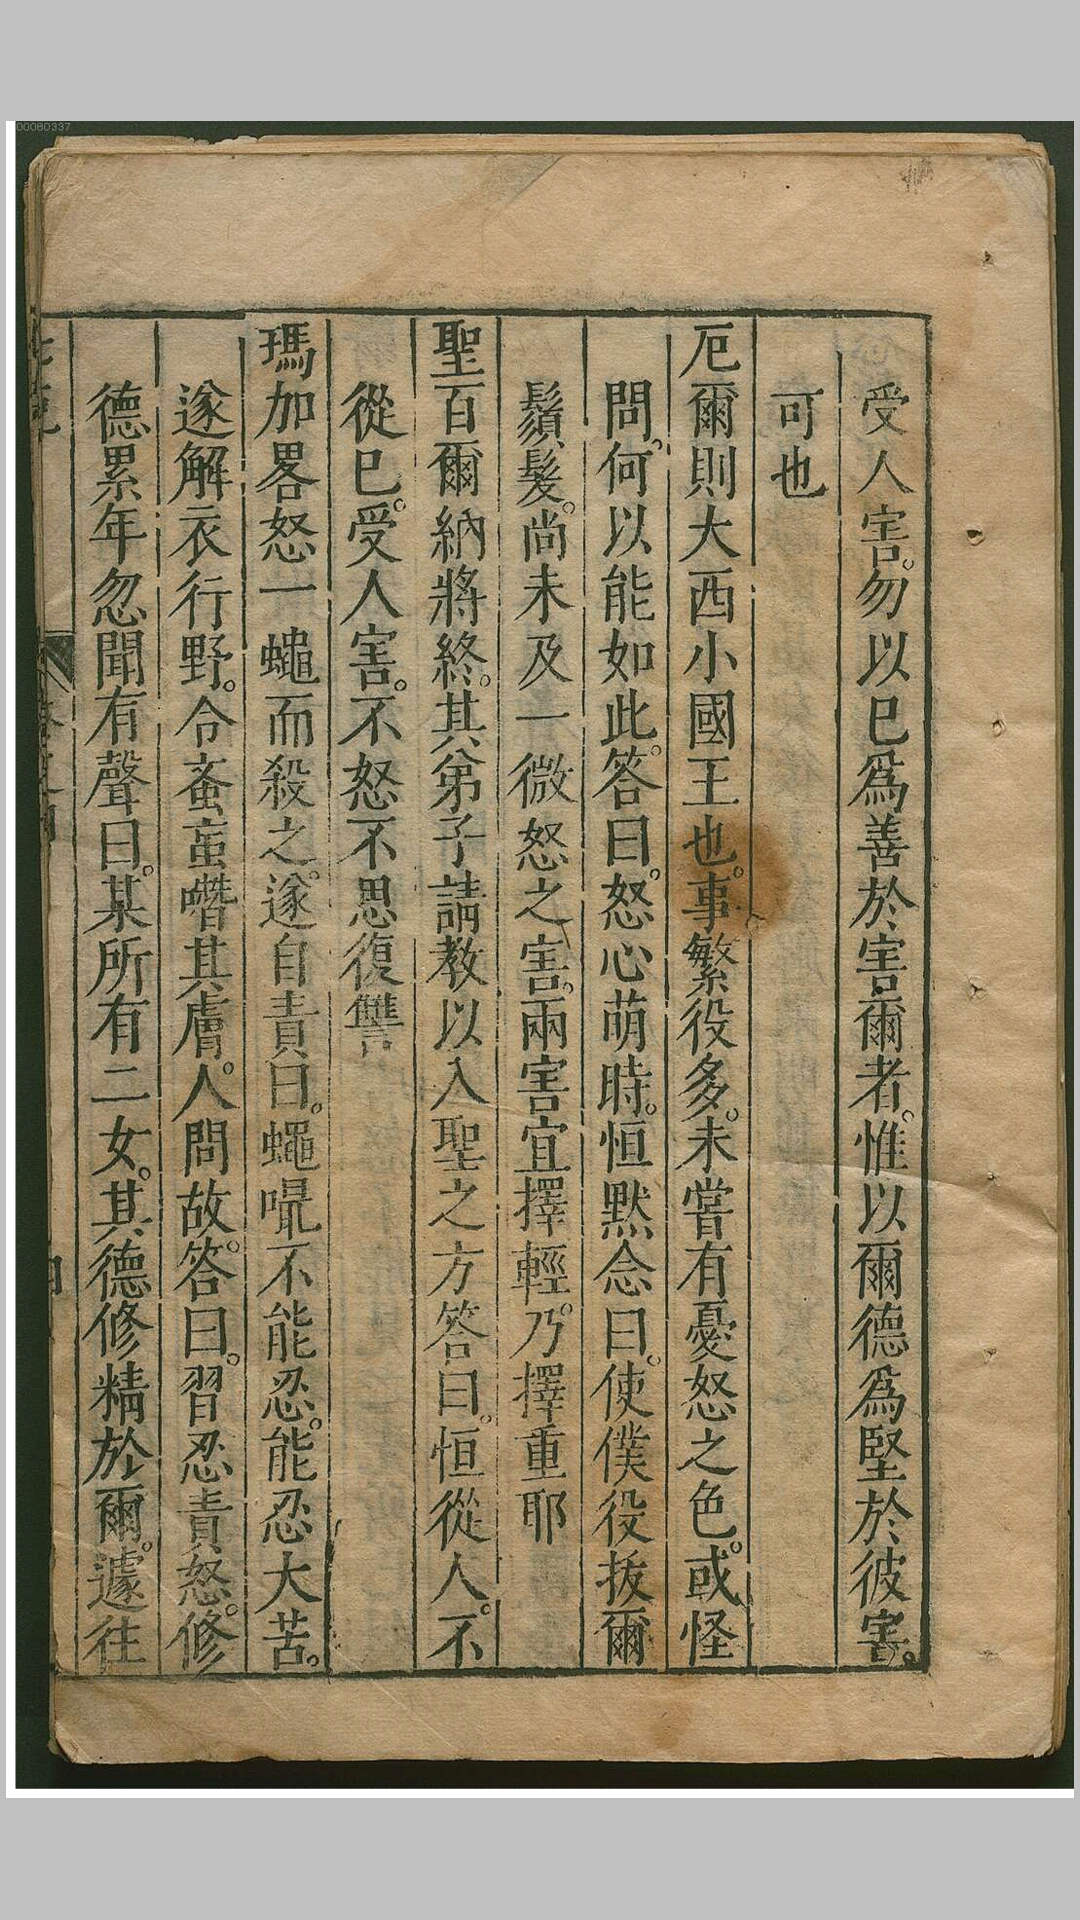 00080337
受人害。勿以已爲善於害爾者。惟以爾德爲堅於彼害。
可也
厄爾則大西小國王也。事繁役多。未嘗有憂怒之色。或怪
問。何以能如此。答曰。怒心萌時。恒默念曰。使僕役拔爾
鬚髮。尚未及一微怒之害。兩害宜擇輕。乃擇重耶
聖百爾納將終。其弟子請教以入聖之方答曰。恒從人。不
從已。受人害。不怒不思復讐
瑪加畧怒一蠅而殺之。遂自責曰。蠅嘬不能忍。能忍大苦。
遂解衣行野。令蚉䖟噆其膚。人問故。答曰。習忍責怒。修
德累年忽聞有聲曰。某所有二女。其德修精於爾。遽往